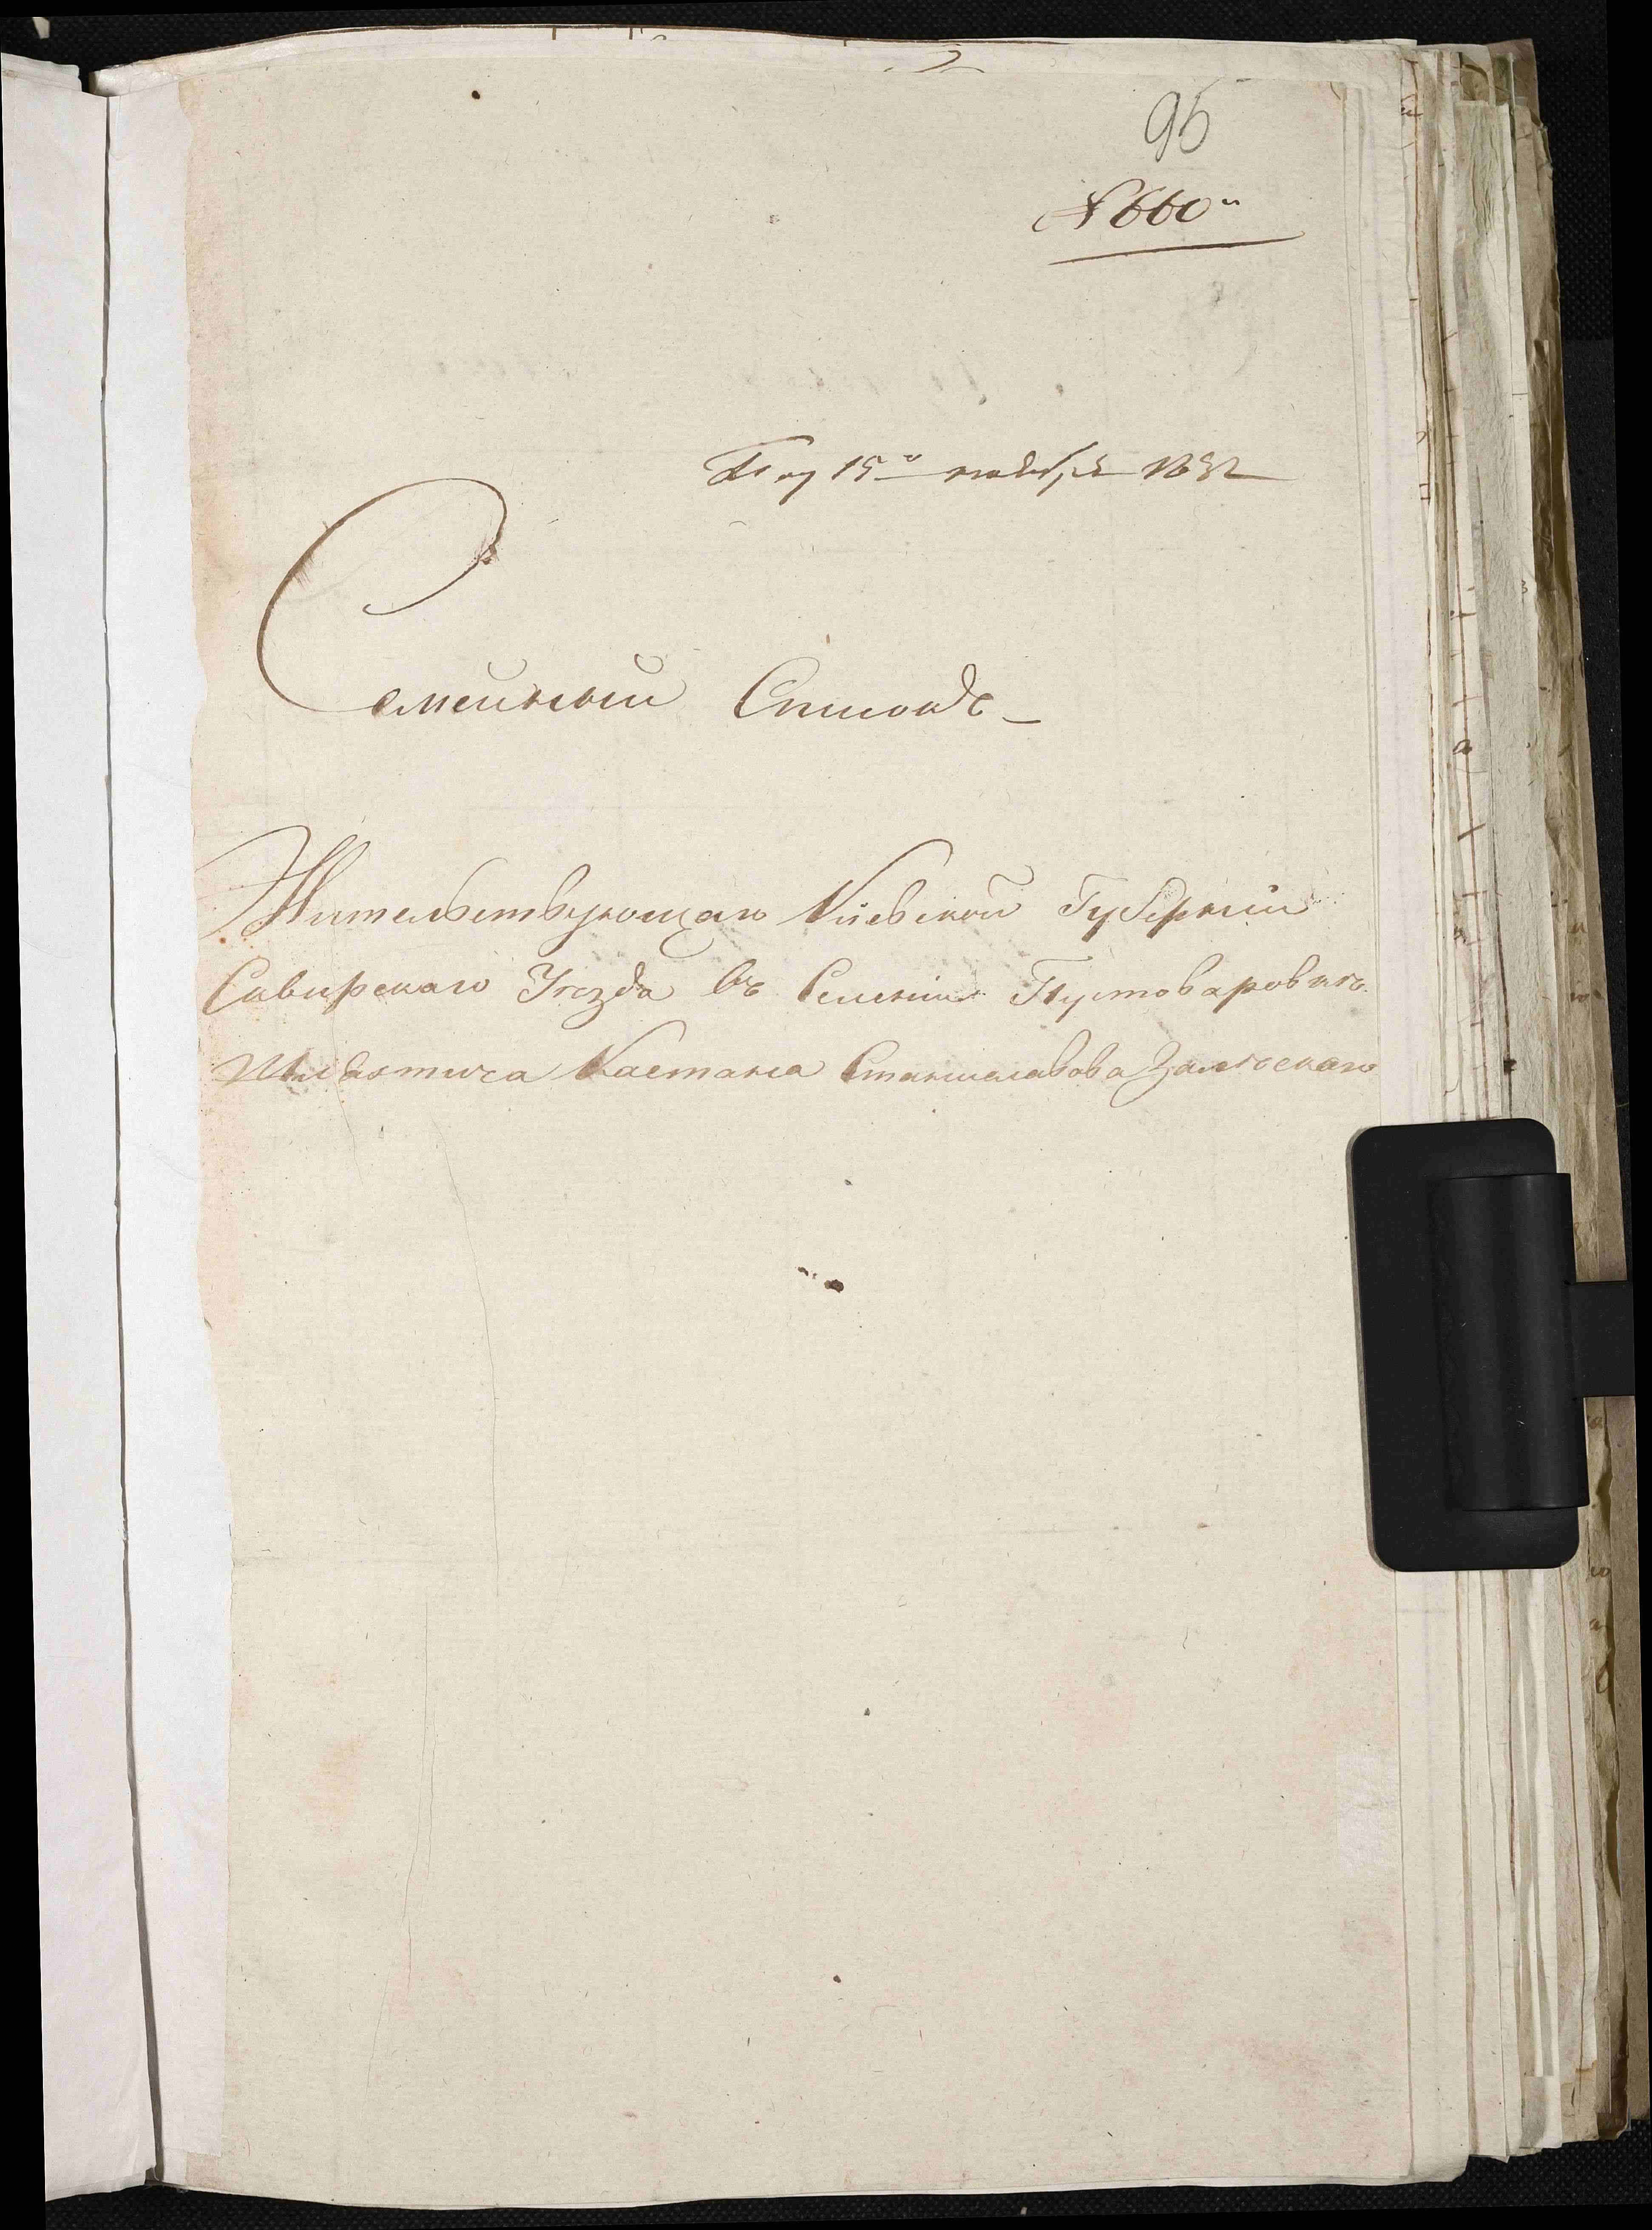 95
№ 660й
15го ноября 1832
Семейный Списокъ
Жительствующаго Кіевской Губерніи
Сквирскаго Уезда въ Селеніи Пустоваровкъ
Шляхтича Каетана Станиславова Залескаго